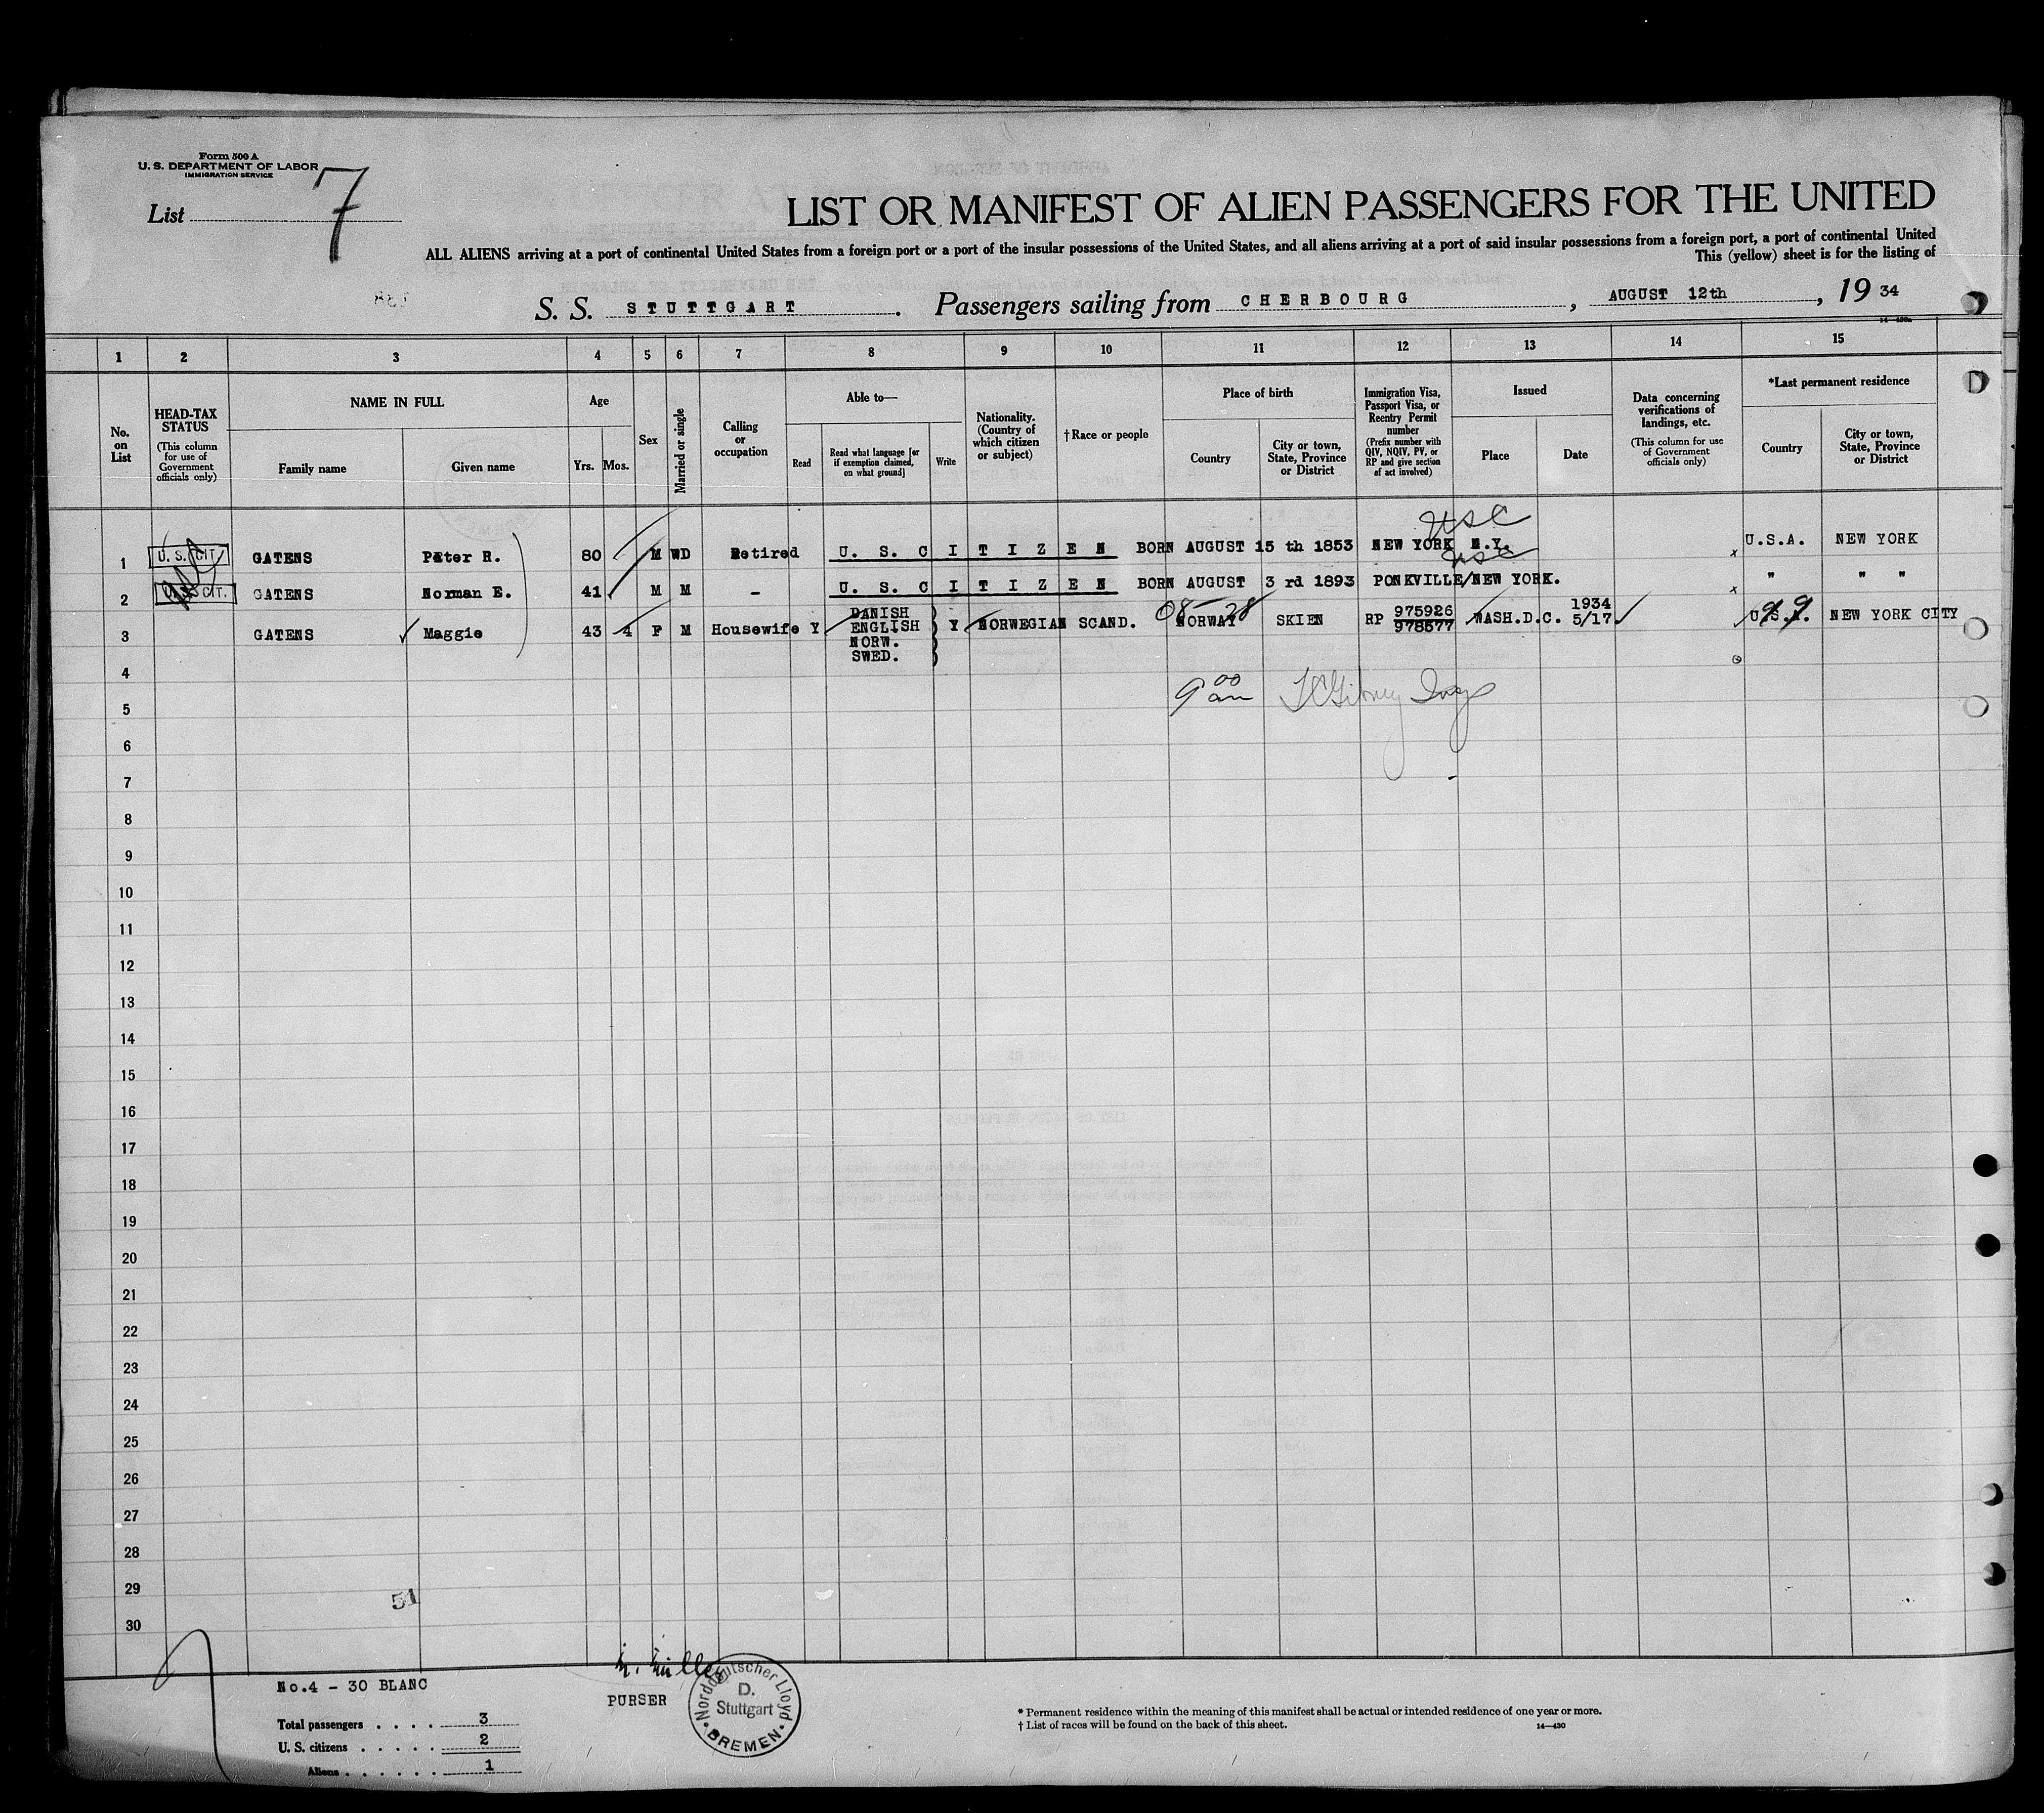 Form 500 A
U. S. DEPARTMENT OF LABOR
IMMIGRATION SERVICE
List 7
LIST OR MANIFEST OF ALIEN PASSENGERS FOR THE UNITED
ALL ALIENS arriving at a port of continental United States from a foreign port or a port of the insular possessions of the United States, and all aliens arriving at a port of said insular possessions from a foreign port, a port of continental United
This (yellow) sheet is for the listing of
S. S. STUTTGART . Passengers sailing from CHERBOURG , AUGUST 12th , 19 34
14—430a
1 2 3 4 5 6 7 8 9 10 11 12 13 14 15
No. on List
HEAD-TAX STATUS
(This column for use of Government officials only)
NAME IN FULL
Family name Given name
Age
Yrs. Mos.
Sex
Married or single
Calling or occupation
Able to—
Read
Read what language [or if exemption claimed, on what ground]
Write
Nationality. (Country of which citizen or subject)
†Race or people
Place of birth
Country
City or town, State, Province or District
Immigration Visa, Passport Visa, or Reentry Permit number
(Prefix number with QIV, NQIV, PV, or RP and give section of act involved)
Issued
Place Date
Data concerning verifications of landings, etc.
(This column for use of Government officials only)
*Last permanent residence
Country
City or town, State, Province or District
USC
1 U. S. CIT. GATENS Peter R. 80 M WD Retired U. S. CITIZEN BORN AUGUST 15 th 1853 NEW YORK N.Y. x U.S.A. NEW YORK
USC
2 U. S. CIT. GATENS Norman E. 41 M M - U. S. CITIZEN BORN AUGUST 3 rd 1893 PONKVILLE/NEW YORK. x " " "
08-28
3 GATENS ✓ Maggie 43 4 F M Housewife Y DANISH ENGLISH NORW. SWED. Y NORWEGIAN SCAND. NORWAY SKIEN RP 975926 978577 WASH.D.C. 1934 5/17 U.S.A. NEW YORK CITY
4
9 00 am
5
6
7
8
9
10
11
12
13
14
15
16
17
18
19
20
21
22
23
24
25
26
27
28
29
51
30
No.4 - 30 BLANC
Total passengers . . . . 3
U. S. citizens . . . . . 2
Aliens . . . . . . 1
PURSER
Norddeutscher Lloyd
D.
Stuttgart
BREMEN
* Permanent residence within the meaning of this manifest shall be actual or intended residence of one year or more.
† List of races will be found on the back of this sheet.
14—430